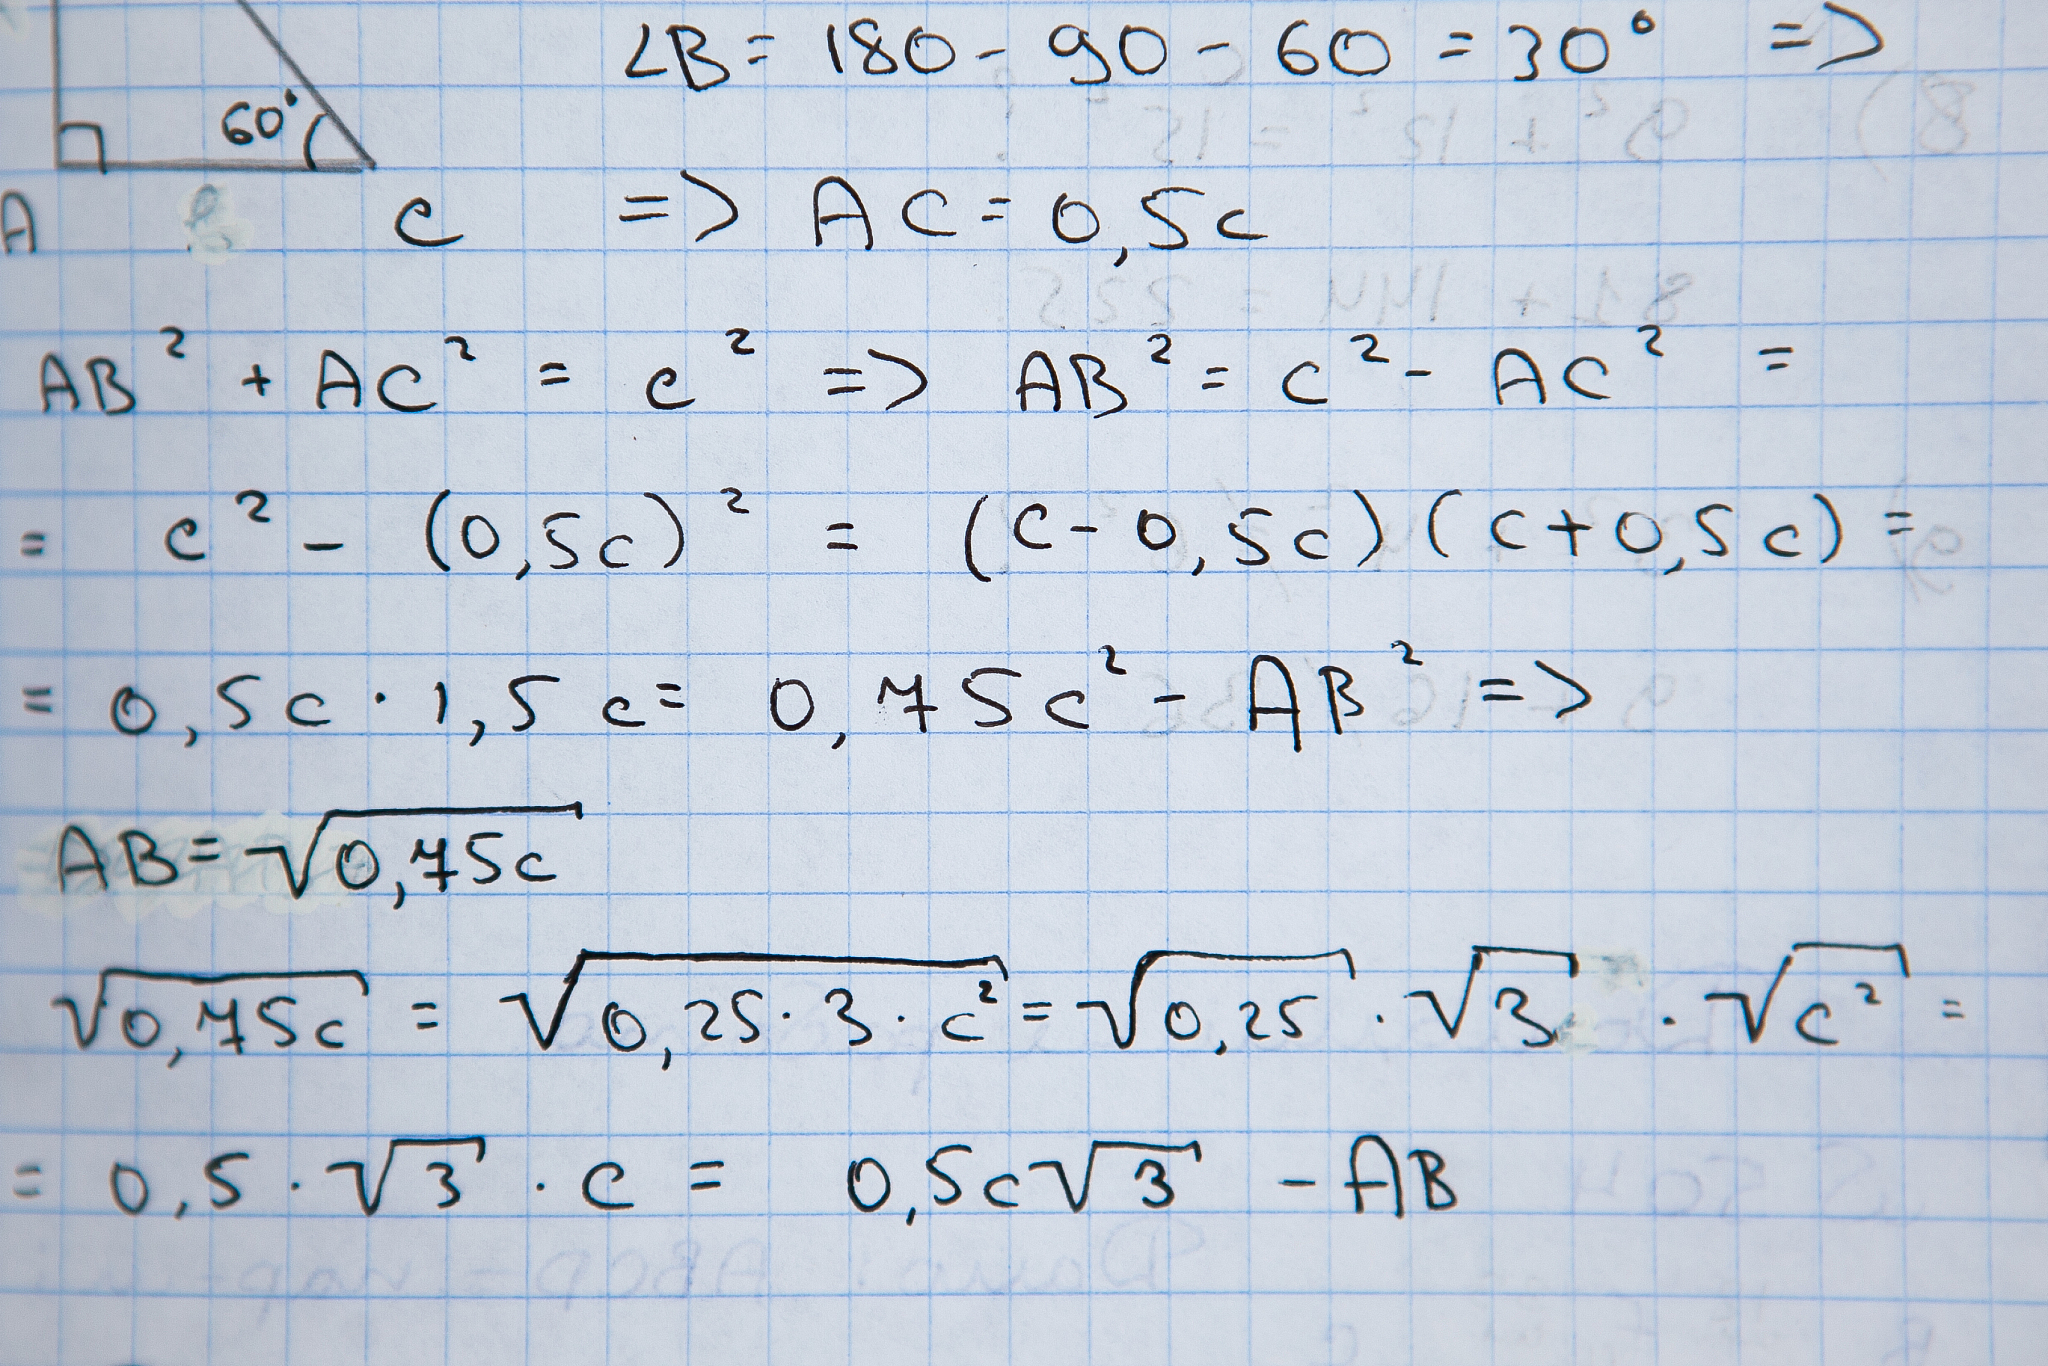 ∠B = 180 - 90 - 60 = 30° =>
60°
A C => AC = 0,5c
AB² + AC² = c² => AB² = c² - AC² =
= c² - (0,5c)² = (c-0,5c)(c+0,5c) =
= 0,5c · 1,5c = 0,75c² - AB² =>
AB = √0,75c
√0,75c = √0,25·3·c² = √0,25 · √3 · √c² =
= 0,5 · √3 · c = 0,5c√3 - AB